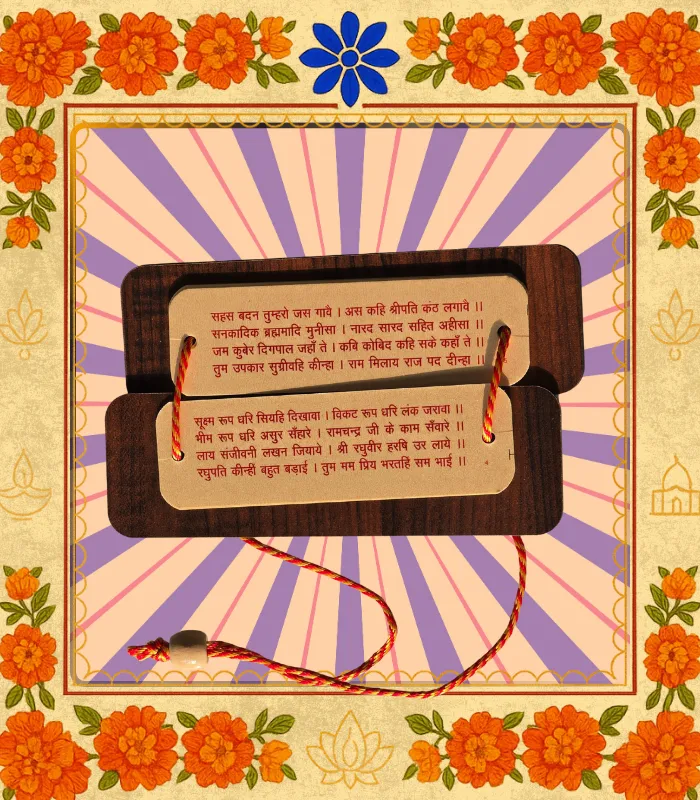 सहस बदन तुम्हरो जस गावै । अस कहि श्रीपति कंठ लगावै ।।
सनकादिक ब्रह्मादि मुनीसा । नारद सारद सहित अहीसा ।।
जम कुबेर दिगपाल जहाँ ते । कबि कोबिद कहि सके कहाँ ते ।।
तुम उपकार सुग्रीवहि कीन्हा । राम मिलाय राज पद दीन्हा ।।
सूक्ष्म रूप धरि सियहि दिखावा । विकट रूप धरि लंक जरावा ।।
भीम रूप धरि असुर सँहारे । रामचन्द्र जी के काम सँवारे ।।
लाय संजीवनी लखन जियाये । श्री रघुवीर हरषि उर लाये ।।
रघुपति कीन्हीं बहुत बड़ाई । तुम मम प्रिय भरतहि सम भाई ।।